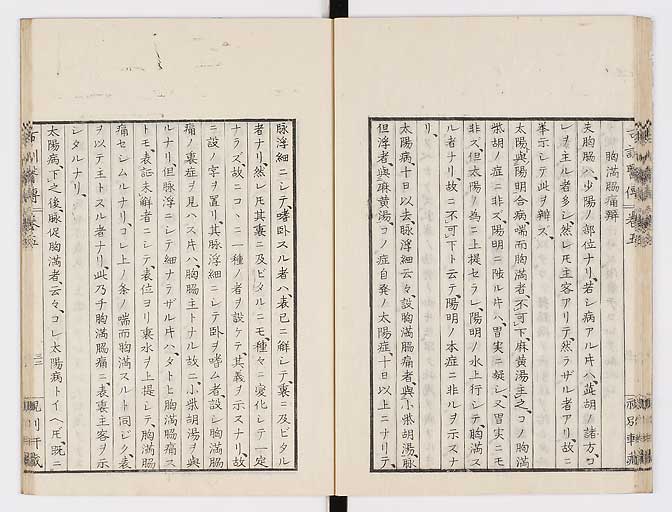 胸滿脇痛辨
夫胸脇ハ少陽ノ部位ナリ、若シ病アル片ハ、茈胡ノ諸方、コ
レヲ主ル者多シ、然レ𪜈主客アリテ然ラザル者アリ、故ニ
擧示シテ此ヲ辨ズ、
太陽與陽明合病、喘而胸滿者、不可下、麻黄湯主之、コノ胸滿
茈胡ノ症ニ非ズ、陽明ニ陟ル片ハ、胃実ニ疑ヘ𪜈、又胃実ニモ
非ズ、但太陽ノ為ニ上提セラレ、陽明ノ水上行シテ、胸滿ス
ル者ナリ、故ニ不可下ト云テ、陽明ノ本症ニ非ルヲ示スナ
リ、
太陽病、十日以去、脉浮細云々、設胸滿脇痛者、與小茈胡湯、脉
但浮者、與麻黄湯、コノ症自発ノ太陽症、十日以上ニナリテ、
脉浮細ニシテ、嗜卧スル者ハ、表已ニ解シテ、裏ニ及ビタル
者ナリ、然レ𪜈其裏ニ及ビタルニモ、種々ニ変化シテ一定
ナラズ、故ニコヽニ一種ノ者ヲ設ケテ、其義ヲ示スナリ、故
ニ設ノ字ヲ置リ、其脉浮細ニシテ卧ヲ嗜ム者、設シ胸滿脇
痛ノ裏症ヲ見ハス片ハ、胸脇主トナル故ニ、小茈胡湯ヲ與
ルナリ、但脉浮ニシテ細ナラザル片ハ、タトヒ胸滿脇痛ス
トモ、表証未解者ニシテ、表位ヨリ裏水ヲ上提シテ、胸滿脇
痛セシムルナリ、コレ上ノ条ノ喘而胸滿スルト同ジク、表
ヲ以テ主トスル者ナリ、此乃チ胸滿脇痛ニ、表裏主客ヲ示
シタルナリ、
太陽病、下之後、脉促胸滿者、云々、コレ太陽病トイヘ𪜈、既ニ